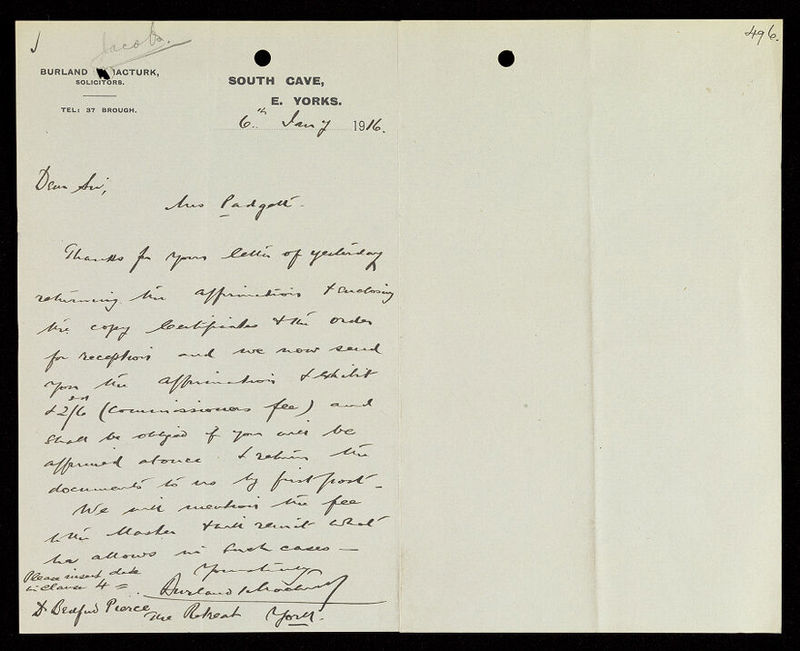 Jacobs.
496.
BURLAND ACTURK,
SOLICITORS.
TEL: 37 BROUGH.
SOUTH CAVE,
E. YORKS.
6th Jany 1916.
Dear Sir,
Mrs Padgett.
Thanks for your letter of yesterday
returning the affirmation & enclosing
the copy Certificates & the order
for reception and we now send
you the affirmation & exhibit
& 2/6 (Commissioners fee) and
shall be obliged if you will be
affirmed at once & return the
documents to us by first post -
We will mention the fee
to the Master & will remit what
he allows in such cases —
Yours truly
Burland & Macturk
Please insert date
in clause 4 =
Dr Bedford Pierce
The Retreat York.